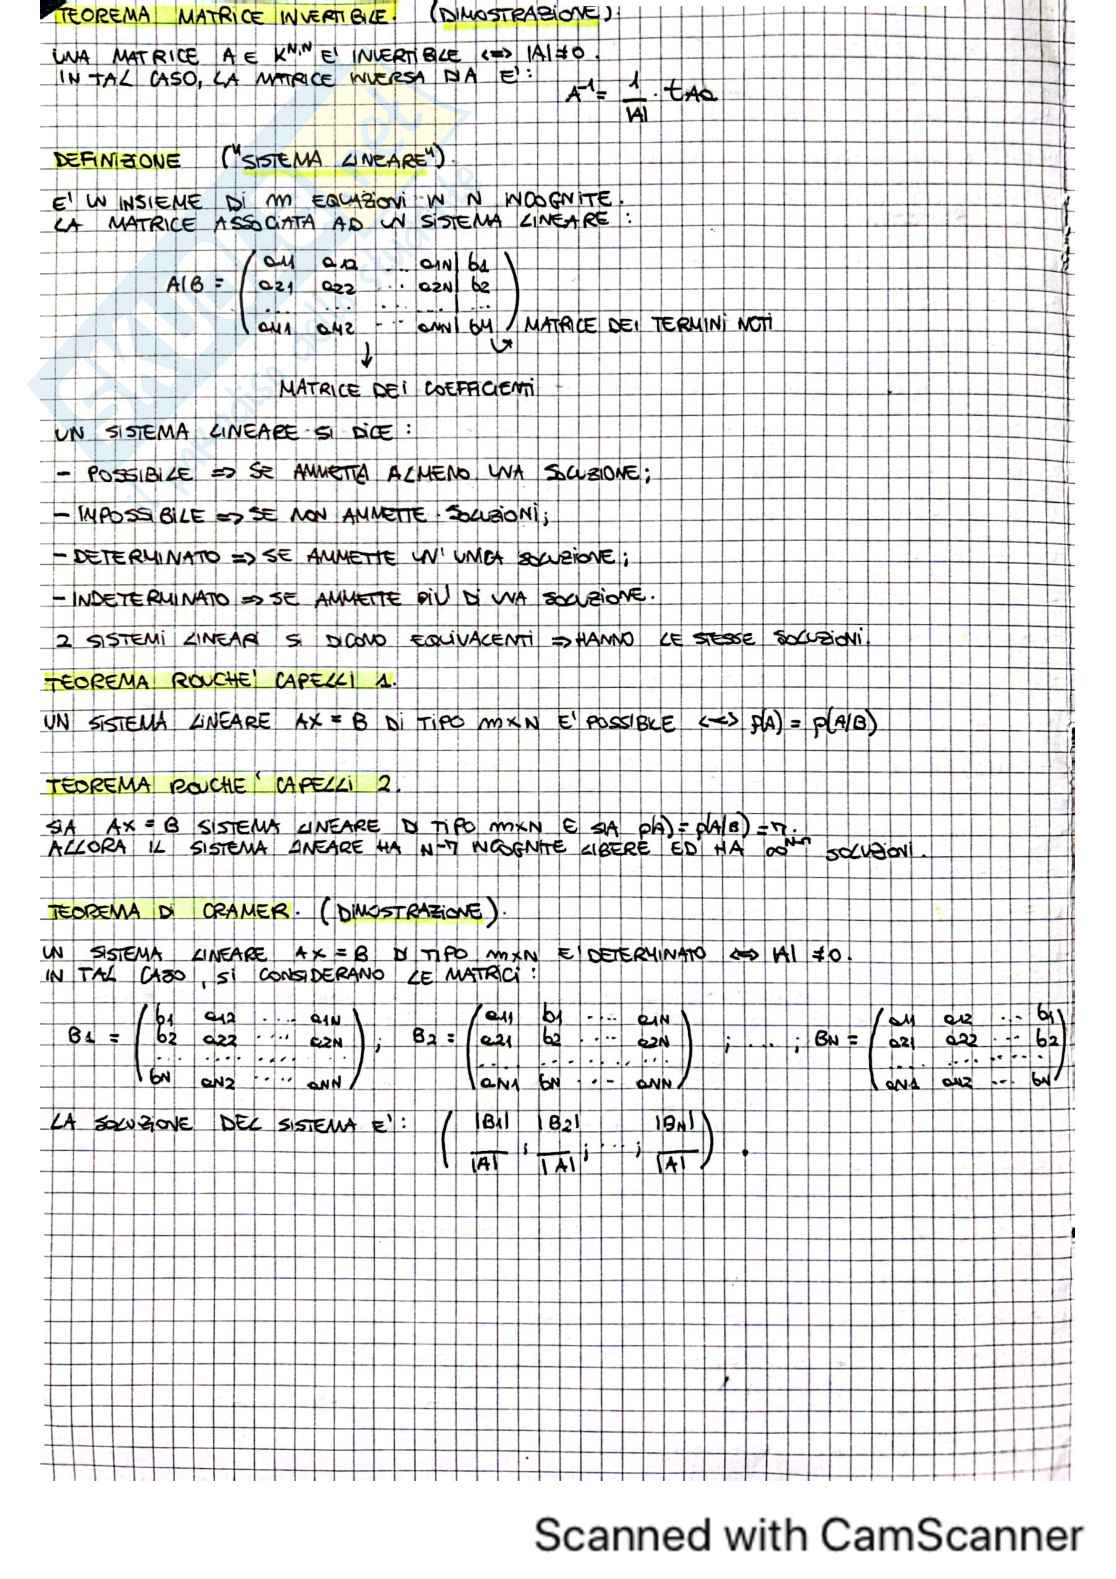 TEOREMA MATRICE INVERTIBILE. (DIMOSTRAZIONE).
UNA MATRICE A ∈ K^N,N E' INVERTIBILE <=> |A| ≠ 0.
IN TAL CASO, LA MATRICE INVERSA DI A E': A^-1 = 1/|A| · tAa
DEFINIZIONE ("SISTEMA LINEARE").
E' UN INSIEME DI m EQUAZIONI IN N INCOGNITE.
LA MATRICE ASSOCIATA AD UN SISTEMA LINEARE :
a11 a12 ... a1N | b1
A|B = a21 a22 ... a2N | b2
... ... ... ...
aM1 aM2 ... aMN | bM MATRICE DEI TERMINI NOTI
↓
MATRICE DEI COEFFICIENTI
UN SISTEMA LINEARE SI DICE :
- POSSIBILE => SE AMMETTA ALMENO UNA SOLUZIONE;
- IMPOSSIBILE => SE NON AMMETTE SOLUZIONI;
- DETERMINATO => SE AMMETTE UN' UNICA SOLUZIONE;
- INDETERMINATO => SE AMMETTE PIÙ DI UNA SOLUZIONE.
2 SISTEMI LINEARI SI DICONO EQUIVALENTI => HANNO LE STESSE SOLUZIONI.
TEOREMA ROUCHE' CAPELLI 1.
UN SISTEMA LINEARE AX = B DI TIPO m×N E' POSSIBLE <=> ρ(A) = ρ(A|B)
TEOREMA ROUCHE' CAPELLI 2.
SIA AX = B SISTEMA LINEARE DI TIPO m×N E SIA ρ(A) = ρ(A|B) = r.
ALLORA IL SISTEMA LINEARE HA N-r INCOGNITE LIBERE ED HA ∞^N-r SOLUZIONI.
TEOREMA DI CRAMER. (DIMOSTRAZIONE).
UN SISTEMA LINEARE AX = B DI TIPO m×N E' DETERMINATO <=> |A| ≠ 0.
IN TAL CASO, SI CONSIDERANO LE MATRICI :
b1 a12 .... a1N a11 b1 .... a1N a11 a12 ... b1
B1 = b2 a22 .... a2N ; B2 = a21 b2 .... a2N ; ... ; BN = a21 a22 ... b2
.... .... .... ....
bN aN2 .... aNN aN1 bN ... aNN aN1 aN2 ... bN
LA SOLUZIONE DEL SISTEMA E': ( |B1|/|A| ; |B2|/|A| ; ... ; |BN|/|A| ) .
Scanned with CamScanner